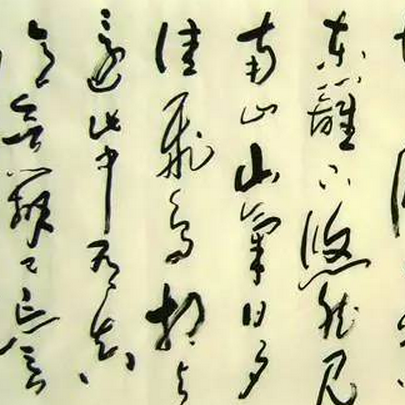 東籬下悠然見
南山山氣日夕
佳飛鳥相與
還此中有真
辨已忘言